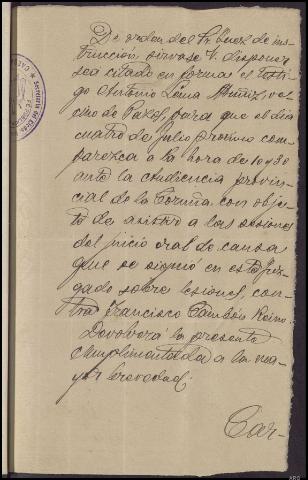 De orden del Sr. Juez de ins-
trucción, sirvase V. disponer
sea citado en forma el testi-
go Antonio Lema Muñiz, ve-
cino de Pazos, para que el dia
cuatro de julio proximo com-
parezca a la hora de 10 y 30
ante la audiencia provin-
cial de la Coruña con obje-
to de asistir a las sesiones
del juicio oral de causa
que se siguió en este juz-
gado sobre lesiones, con-
tra Francisco Cambón Reino.
Devolverá la presente
cumplimentada a la ma-
yor brevedad.
Car-